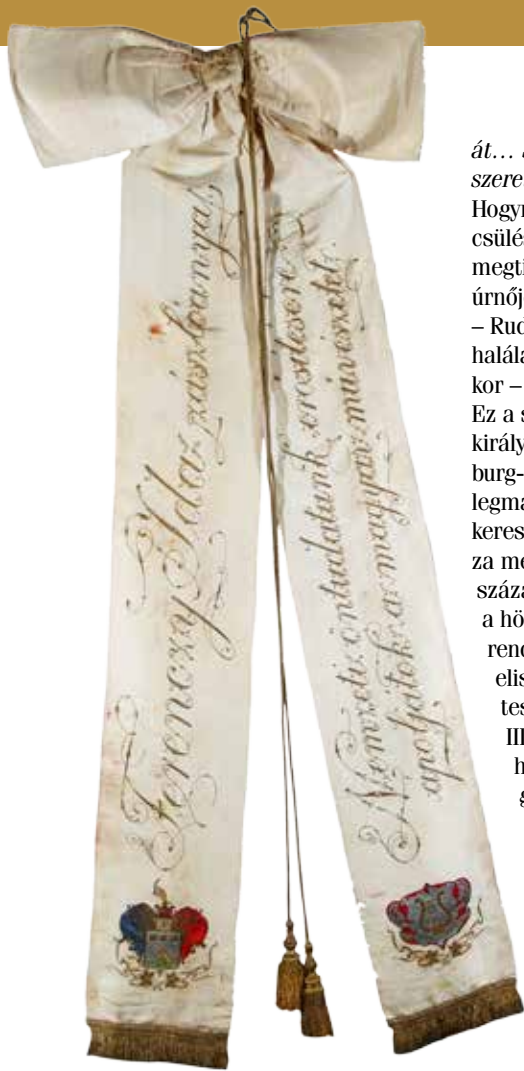 Ferenczy Ida zászlóanya,
Nemzeti öntudatunk erősitésere
ápoljátok a magyar művészetet.
át…
szere
Hogy
csülés
megti
úrnőj
– Rud
halála
kor –
Ez a s
király
burg-
legma
keres
za me
száza
a hö
rend
elis
tes
III
h
g